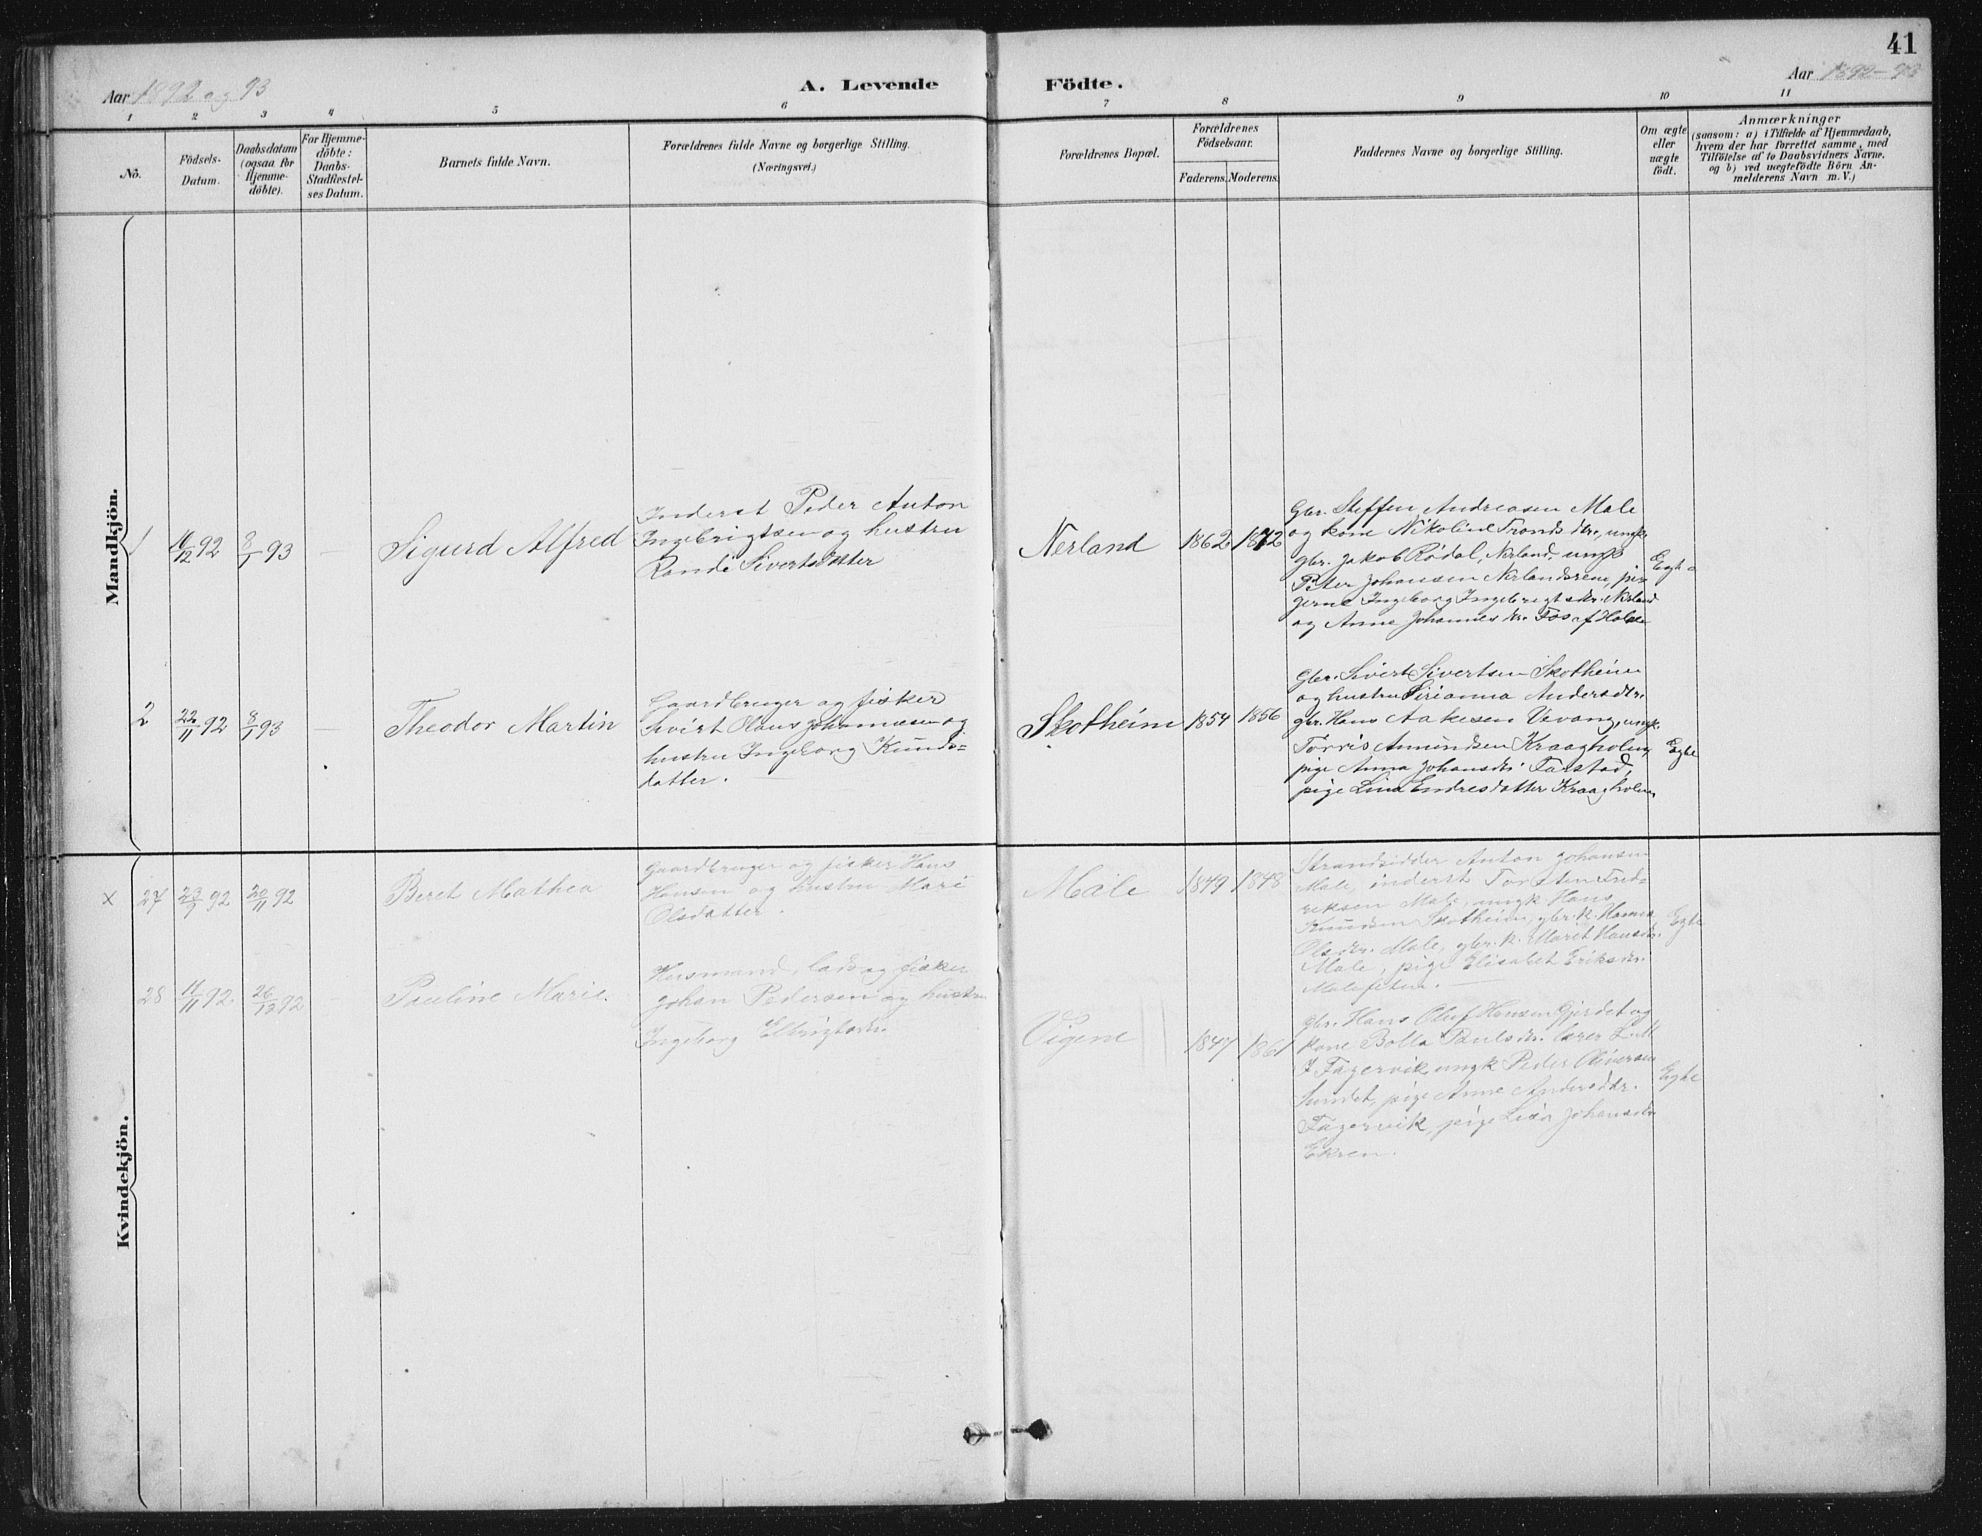 41
Aar 1892 og 93
A. Levende Födte.
Aar 1892-93
1 2 3 4 5 6 7 8 9 10 11
No.
Födsels-
Datum.
Daabsdatum
(ogsaa for
Hjemme-
döbte).
For Hjemme-
döbte:
Daabs-
Stadfæstel-
ses Datum.
Barnets fulde Navn.
Forældrenes fulde Navne og borgerlige Stilling.
(Næringsvei.)
Forældrenes Bopæl.
Forældrenes
Födselsaar.
Faderens. Moderens.
Faddernes Navne og borgerlige Stilling.
Om ægte
eller
uægte
födt.
Anmærkninger
(saasom: a) i Tilfælde af Hjemmedaab,
hvem der har forrettet samme, med
Tilföielse af to Daabsvidners Navne.
og b) ved uægtefödte Börn An-
melderens Navn m. V.)
Mandkjön.
1
16/12 92
8/1 93
Sigurd Alfred
Inderst Peder Anton
Ingebrigtsen og hustru
Randi Sivertsdatter
Nerland
1862
1872
Gbr. Steffen Andreasen Male
og kone Nikoline Trondsdtr, ungk.
gbr. Jakob Rödal, Nerland, ungk
Peter Johansen Nerlandsrem, pi-
gerne Ingeborg Ingebrigtsdtr. Nerland
og Anne Johannesdtr. Fos af
Egte
2
22/11 92
8/1 93
Theodor Martin
Gaardbruger og fisker
Sivert Olaus Johannesen og
hustru Ingeborg Knuds-
datter.
Skotheim
1854
1856
gbr. Sivert Sivertsen Skotheim
og hustru Sirianna Andersdtr.
gbr. Hans Aakesen Vevang, ungk.
Torris Amundsen Kraagholm,
pige Anna Johansdtr Farstad,
pige Lina Endresdatter Kraagholm.
Egte
Kvindekjön.
x 27
23/9 92
20/11 92
Beret Mathea
Gaardbruger og fisker Hans
Hansen og hustru Mari
Olsdatter.
Male
1849
1848
Strandsidder Anton Johansen
Male, inderst Torsten Fred-
riksen Male, ungk Hans
Knudsen Skotheim, gbr. k. Hanna
Olsdtr. Male, gbr. k. Marit Hansdtr.
Male, pige Elisabet Eriksdtr.
Malefeten.
Egte
28
11/11 92
26/12 92
Pauline Marie.
Husmand, lods og fisker
Johan Pedersen og hustru
Ingeborg Ellingsdtr.
Vigene
1847
1861
gbr. Hans Oluf Hansen Gjerdet og
kone Bolla Paulsdtr. lærer
I Fagervik, ungk Peder Oliversen
Sundet, pige Anne Andersdtr.
Fagervik, pige Lisa Johansdtr
Ekren.
Egte